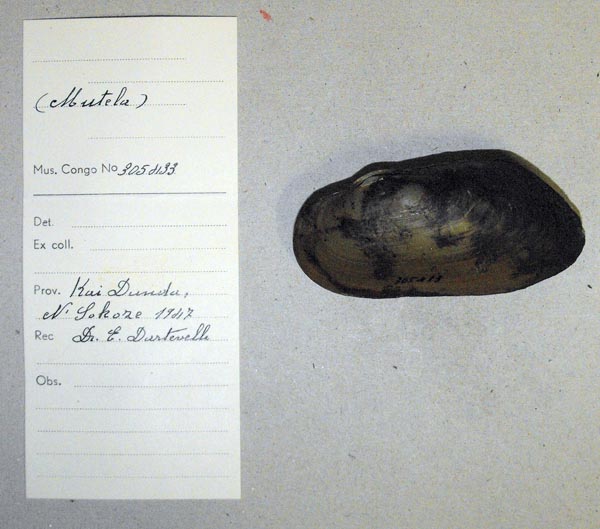 (Mutela)
Mus. Congo No 305d133
Det.
Ex coll.
Prov. Kai Dunda,
1947
Rec Dr. E. Dartevelle
Obs.